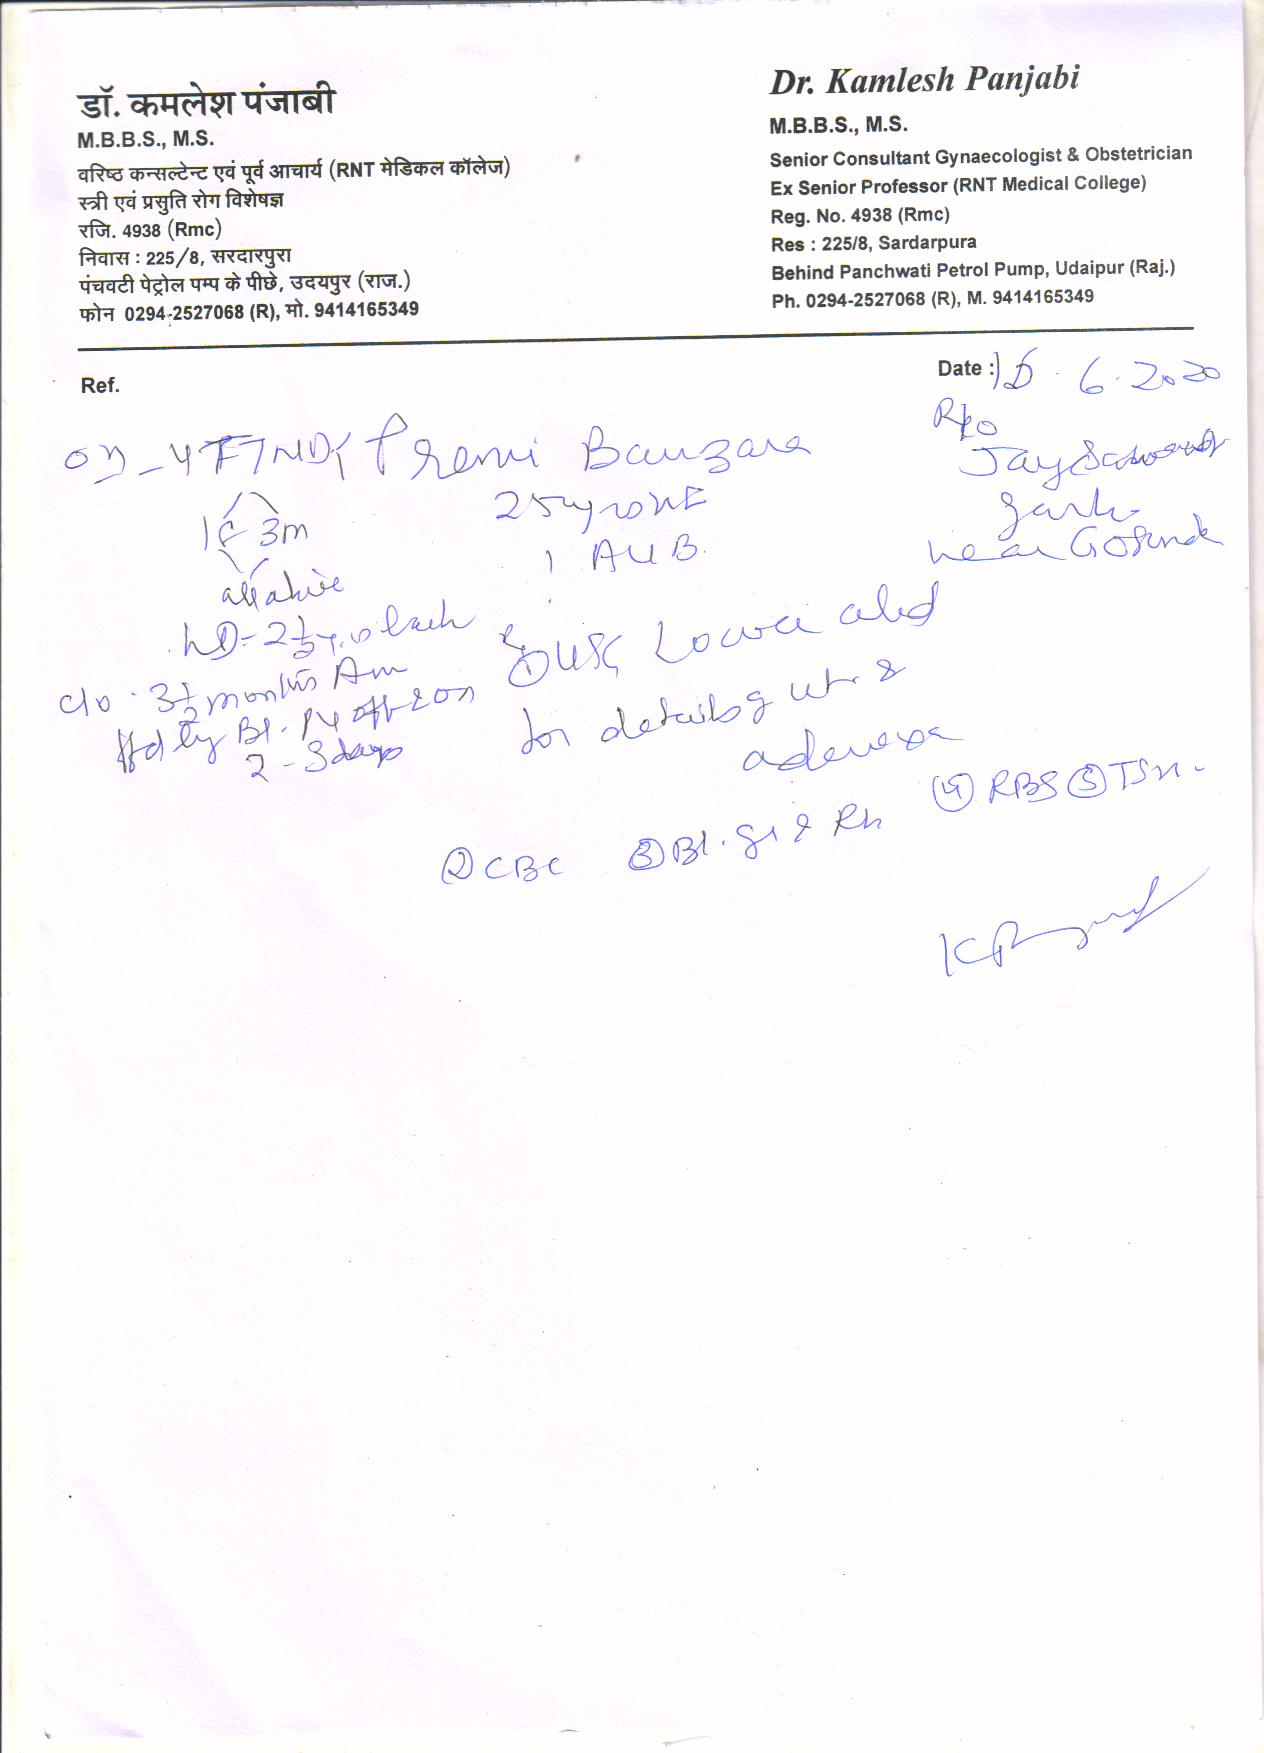 डॉ. कमलेश पंजाबी
M.B.B.S., M.S.
वरिष्ठ कन्सल्टेन्ट एवं पूर्व आचार्य (RNT मेडिकल कॉलेज)
स्त्री एवं प्रसुति रोग विशेषज्ञ
रजि. 4938 (Rmc)
निवास : 225/8, सरदारपुरा
पंचवटी पेट्रोल पम्प के पीछे, उदयपुर (राज.)
फोन 0294-2527068 (R), मो. 9414165349
Dr. Kamlesh Panjabi
M.B.B.S., M.S.
Senior Consultant Gynaecologist & Obstetrician
Ex Senior Professor (RNT Medical College)
Reg. No. 4938 (Rmc)
Res : 225/8, Sardarpura
Behind Panchwati Petrol Pump, Udaipur (Raj.)
Ph. 0294-2527068 (R), M. 9414165349
Ref.
Date : 15.6.2020
R/o
Jay
near
4 FTND Premi Banzara
1F 3m
all alive
LD - 2½ y. back
c/o 3½ months Am
Bl. PV off & on
2-3 days
25
AUB
① USG Lower abd
for details of ut. &
adenexa
② CBC ③ Bl. gr & Rh ④ RBS ⑤ TSH